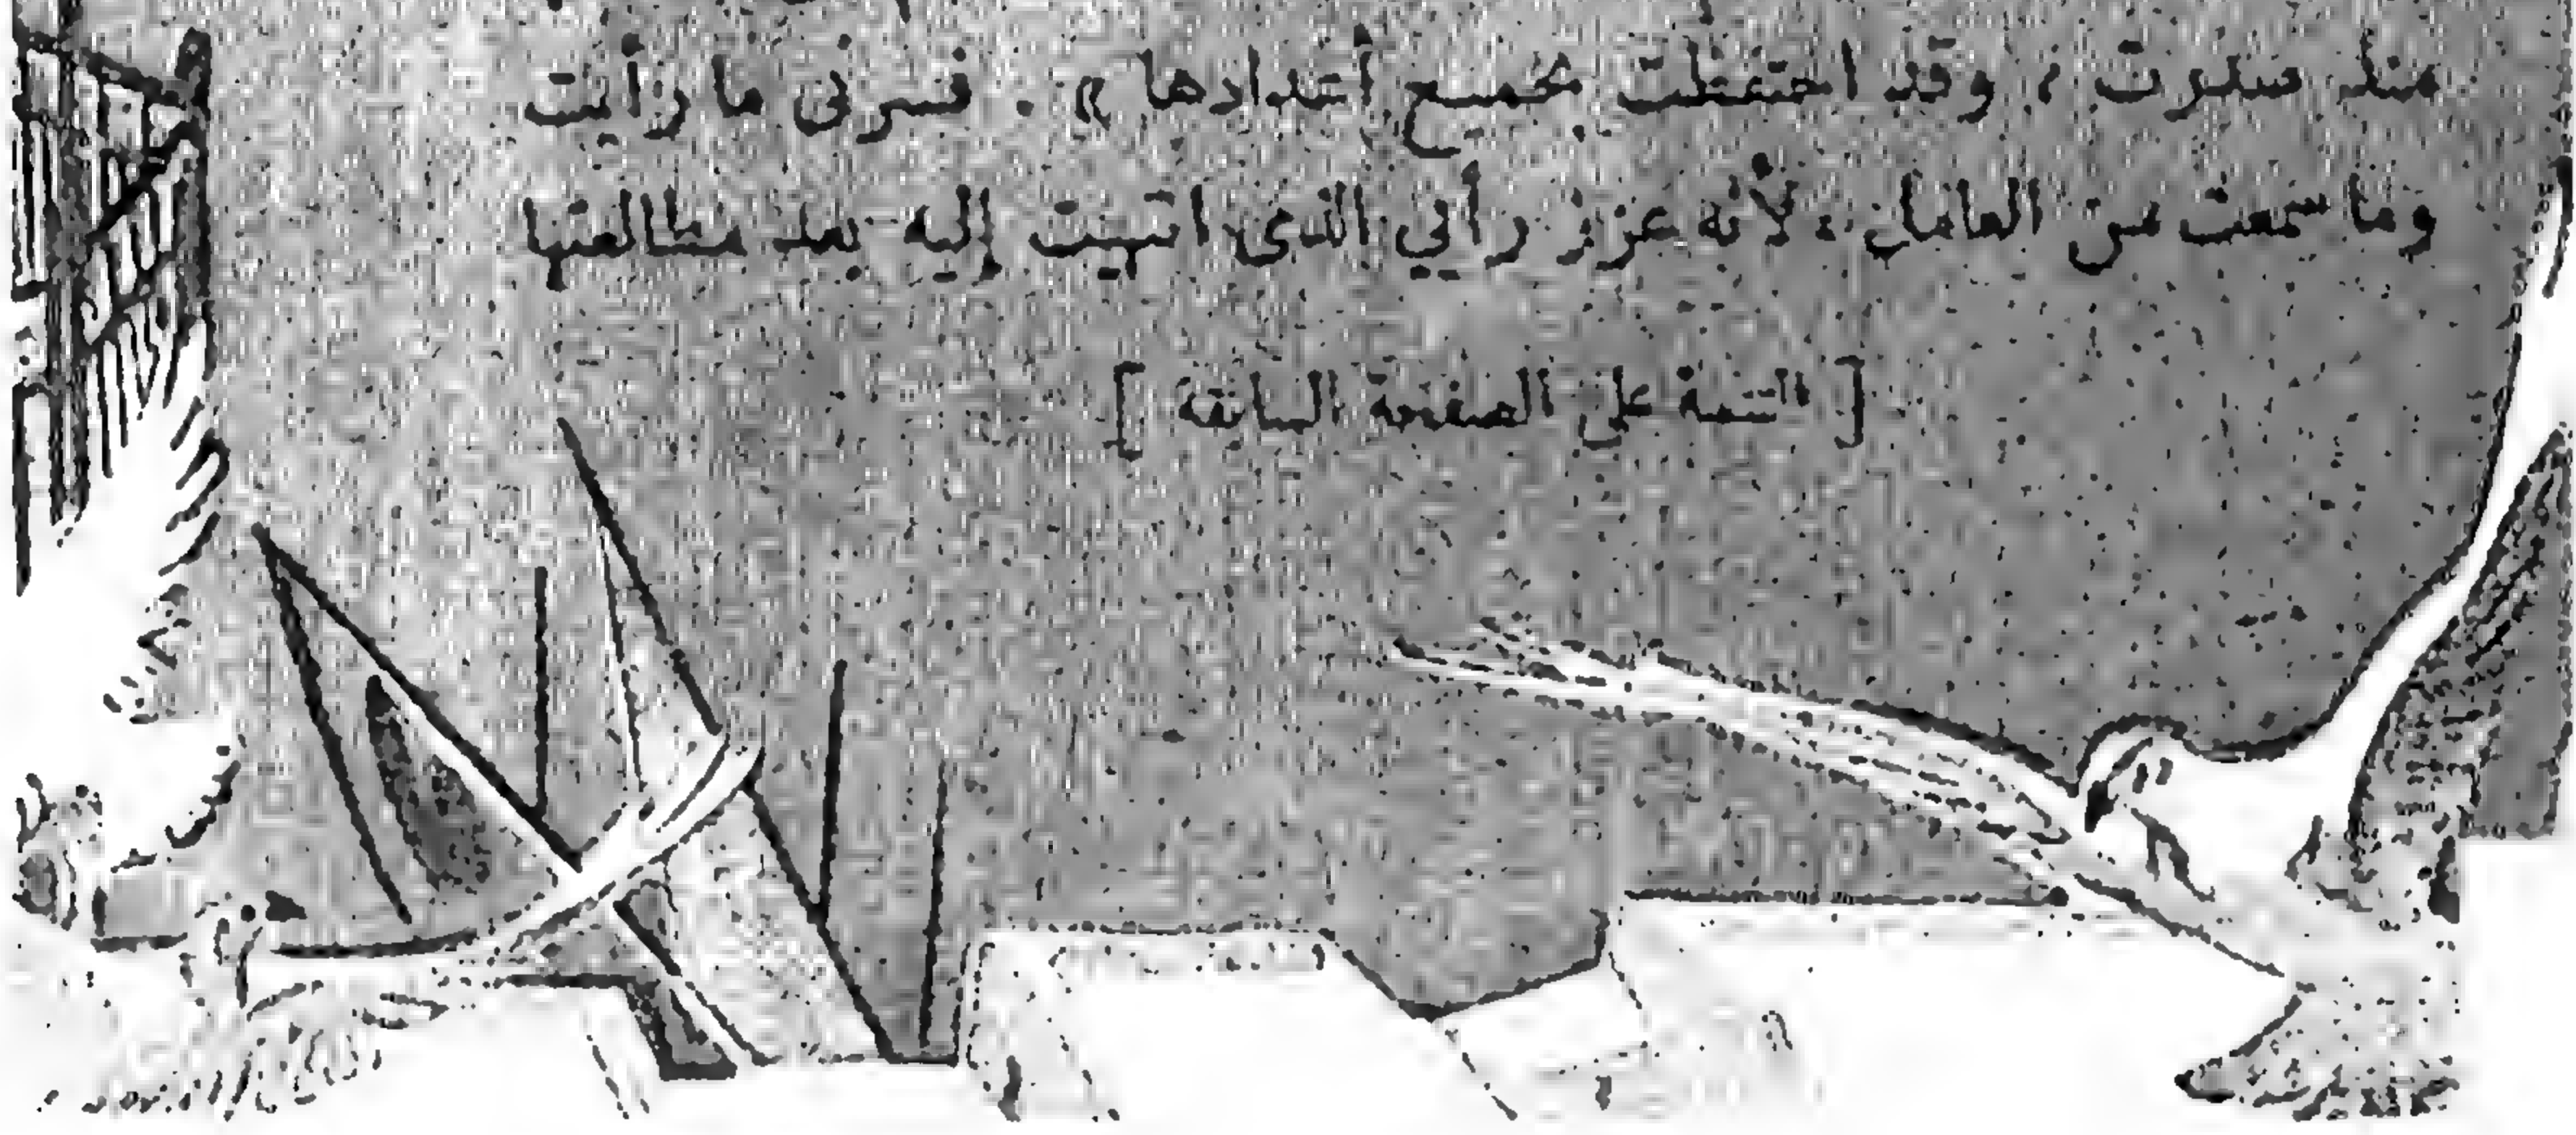 منذ صدرت ، وقد احتفظت بجميع أعدادها » . فسرنى ما رأيت
وما سمعت من العامل ، لأنه عزز رأيي الذى انتهيت إليه بعد مطالعتها
[ التتمة على الصفحة السابقة ]